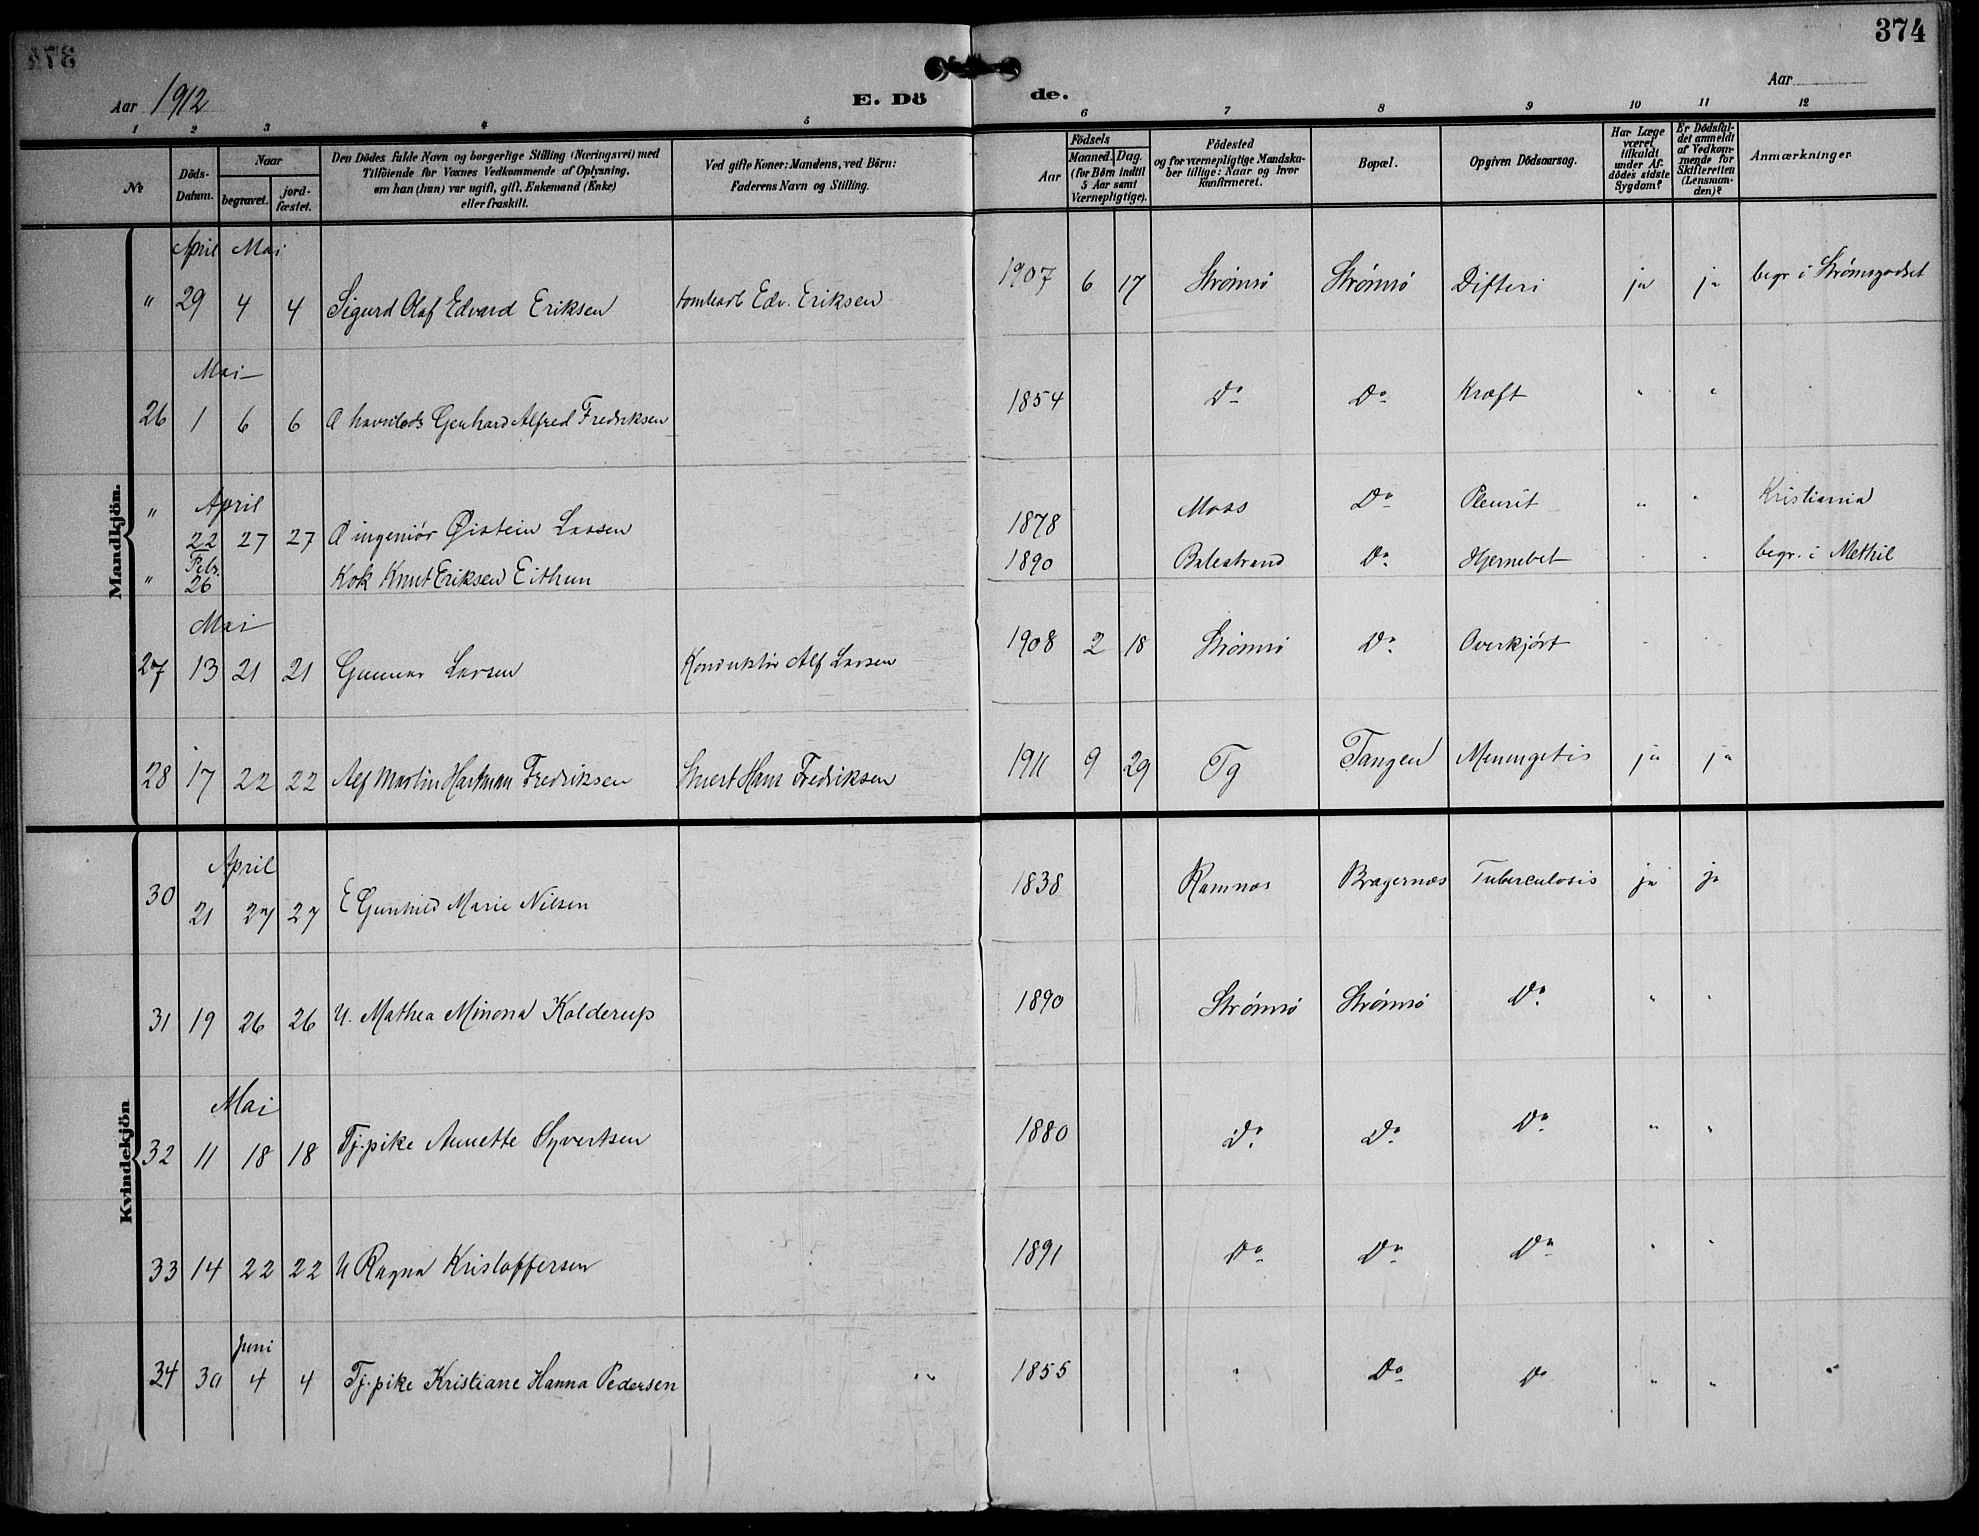 374
Aar 1912
E. Döde.
Aar
1 2 3 4 5 6 7 8 9 10 11 12
No
Döds-Datum.
Naar
begravet.
jordfæstet.
Den Dödes fulde Navn og borgerlige Stilling (Næringsvei) med
Tilföiende for Voxnes Vedkommende af Oplysning,
om han (hun) var ugift, gift, Enkemand (Enke)
eller fraskilt.
Ved gifte Koner: Mandens, ved Börn:
Faderens Navn og Stilling.
Födsels
Aar
Maaned. Dag.
(for Börn indtil
5 Aar samt
Værnepligtige).
Födested
og for værnepligtige Mandskaber
tillige: Naar og hvor
konfirmeret.
Bopæl.
Opgiven Dödsaarsag.
Har Læge
været
tilkaldt
under Afdödes
sidste
Sygdom?
Er Dödsfaldet
anmeldt
af Vedkommende
for
Skifteretten
(Lensmanden)?
Anmærkninger
Mandkjön.
April Mai
" 29 4 4 Sigurd Olaf Edvard Eriksen Edv. Eriksen 1907 6 17 Strømsø Strømsø Difteri ja ja begr i Strømsgodset
Mai
26 1 6 6 Alfred Fredriksen 1854 Do Do Kræft " "
April
" 22 27 27 ingeniør Øistein Lassen 1878 Moss Do Pleurit " " Kristiania
Febr.
" 26 Kok Knut Eriksen Eithun 1890 Balestrand Do Hjernebet " " begr. i Methil
Mai
27 13 21 21 Gunnar Larsen Konduktør Alf Larsen 1908 2 18 Strømsø Do Overkjørt " "
28 17 22 22 Alf Martin Hartman Fredriksen Stuert Hans Fredriksen 1911 9 29 Tg Tangen Menengetis ja ja
Kvindekjön
April
30 21 27 27 E Gunhild Marie Nilsen 1838 Ramnes Bragernæs Tuberculosis ja ja
31 19 26 26 U. Mathea Minona Kolderup 1890 Strømsø Strømsø Do " "
Mai
32 11 18 18 Tj.pike Annette Syvertsen 1880 Do Do Do " "
33 14 22 22 U Ragna Kristoffersen 1891 Do Do Do " "
Juni
34 30 4 4 Tj.pike Kristiane Hanna Pedersen " 1855 " Do Do " " "